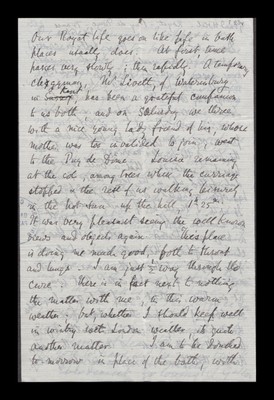 Our Royat life goes on like life in bath
places usually does. At first time
passes very slowly; then rapidly. A temporary
clergyman, Mr. Livett, of Wateringbury
in Kent, has been a grateful companion
to us both; and on Saturday we three
with a nice young lady friend of his, whose
mother was too invalided to join, went
to the Puy de Dôme. Louisa remaining
at the col, among trees where the carriage
stopped & the rest of us walking
in the hot sun up the hill, 1h 25m.
It was very pleasant seeing the well known
views and objects again. This place
is doing me much good, both to throat
and lungs. I am just ½ way through the
cure. There is in fact next to nothing
the matter with me, in this warm
weather; but, whether I should keep well
in wintry east London weather, is quite
another matter. I am to be
to-morrow in place of the bath, with